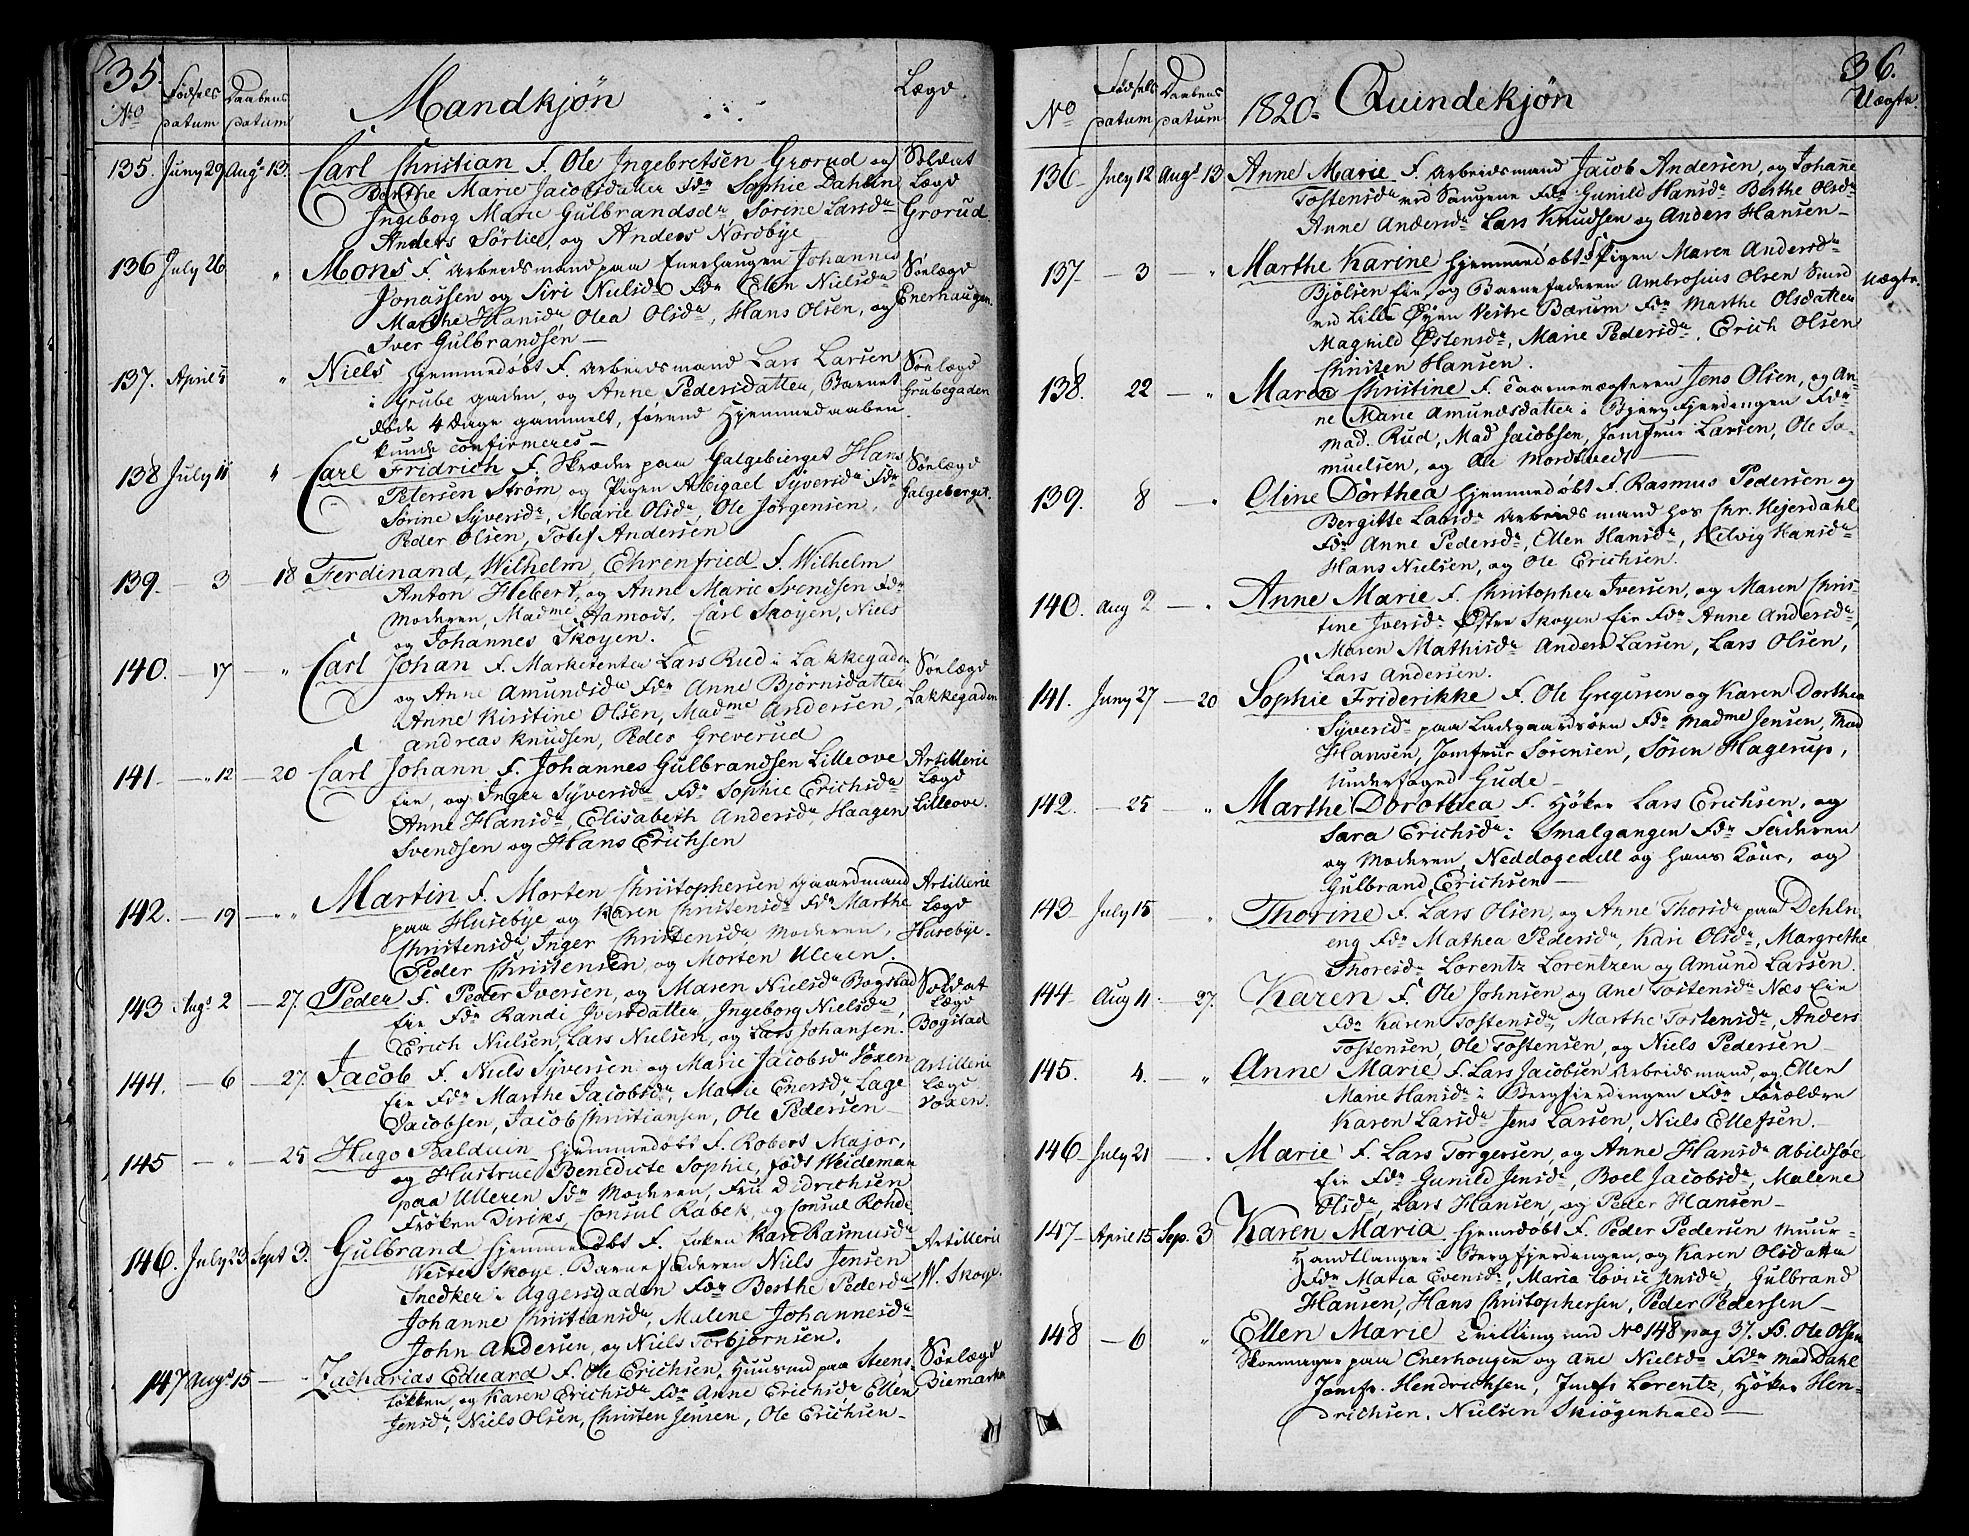 35.
No
Fødsels
datum
Daabens
datum
Mandkjøn
Lægd.
135. Juny 29 Augs 13. Carl Christian F. Ole Ingebretsen Grorud og Soldat
Berthe Marie Jacobsdatter Fdr Sophie Dahlin Lægd
Ingeborg Marie Gulbrandsdr, Sørine Larsdr Grorud.
Anders Sørlie, og Anders Nordbye
136 July 26 " Mons F. Arbeidsmand paa Enerhaugen Johannes Sørlægd
Jonassen og Siri Nielsdr Fdr Ellen Nielsdr Enerhaugen.
Marthe Hansdr Olea Olsdr, Hans Olsen, og
Iver Gulbrandsen —
137. April 5 " Niels hjemmedøbt F. Arbeidsmand Lars Larsen Sørlægd
i Grube gaden, og Anne Pedersdatter, Barnet Grubegaden
døde 4 Dage gammelt, førend Hjemmedaaben
kunde confirmeres —
138 July 11 " Carl Fridrich F. Skræder paa Galgebierget Hans Sørlægd
Petersen Strøm og Pigen Abigael Syversdr Fdr Galgeberget.
Sørine Syversdr, Marie Olsdr, Ole Jørgensen,
Peder Olsen, Tolef Andersen
139. — 3 — 18 Ferdinand, Wilhelm, Ehrenfried F. Wilhelm
Anton Hebert, og Anne Marie Svendsen Fdr
Moderen, Madme Hamodt, Carl Skøyen, Niels
og Johannes Skøyen.
140. — 17 — " Carl Johan F. Marketenter Lars Rud i Lakkegaden Sørlægd
og Anne Amundsdr Fdr Anne Bjørnsdatter Lakkegaden
Anne Kirstine Olsen, Madme Andersen,
Andreas Knudsen, Peder Greverud
141. — " 12 — 20 Carl Johann F. Johannes Gulbrandsen Lilleove Artillerie
Eie, og Inger Syversdr Fdr Sophie Erichsdr Lægd
Anne Hansdr, Elisabeth Andersdr, Haagen Lilleove.
Svendsen og Hans Erichsen
142. — 19 — " Martin F. Morten Christophersen Gaardmand Artillerie
paa Husebye og Karen Christensdr Fdr Marthe Lægd
Christensdr, Inger Christensdr, Moderen, Husebye.
Peder Christensen, og Morten Ulleren.
143 Augs 2 — 27. Peder F. Peder Iversen, og Maren Nielsdr Bogstad Soldat
Eie Fdr Randi Iversdatter, Ingeborg Nielsdr, Lægd
Erich Nielsen, Lars Nielsen, og Lars Johansen. Bogstad
144. — 6 — 27. Jacob F. Niels Syversen og Marie Jacobsdr Voxen Artillerie
Eie Fdr Marthe Jacobsdr, Marie Enersdr, Lage Lægd
Jacobsen, Jacob Christiansen, Ole Pedersen Voxen.
145 — " — 25 Hugo Balduin hjemmedøbt F. Robert Major,
og Hustrue Benedicte Sophie, født Weideman
paa Ulleren Fdr Moderen, Fru Didrichsen
Frøken Diriks, Consul Rabek, og Consul Rohde
146. July 23 Sept 3. Gulbrand hjemmedøbt F. Enken Kari Rasmusdr Artillerie
Wester Skoye. Barnefaderen Niels Jensen W. Skoye.
Snedker i Aggersgaden Fdr Berthe Pedersdr
Johanne Christiansdr, Malene Johannesdr
John Andersen, og Niels Torbjørnsen.
147 Augs 15 — Zacharias Eduard F. Ole Erichsen, Huusmd paa Steens- Sørlægd
løkken, og Karen Erichsdr Fdr Anne Erichsdr Ellen Biemarken
Jensdr, Niels Olsen, Christen Jensen, Ole Erichsen —
36.
No
Fødsels
datum
Daabens
datum
1820. Quindekjøn
Uægte.
136 July 12 Augs 13 Anne Marie F. Arbeidsmand Jacob Andersen, og Johanne
Tostensdr ved Saugene Fdr Gunild Hansdr Berthe Olsdr
Anne Andersdr Lars Knudsen og Anders Hansen —
137 — 3 — " Marthe Karine hjemmedøbt F. Pigen Maren Andersdr
Bjølsen Eie og Barnefaderen Ambrosius Olsen Smed Uægte
ved Lille Øyen Vestre Barum Fdr Marthe Olsdatter
Magnild Østensdr, Marie Pedersdr, Erich Olsen
Christen Hansen.
138. 22 — " Maren Christine F. Taarnevægteren Jens Olsen, og An-
ne Marie Amundsdatter i Bjergfjerdingen Fdr
Mad. Rud, Mad Jacobsen, Jomfrue Larsen, Ole Sa-
muelsen, og Ole Mordtvedt
139. 8 — " Eline Dorthea hjemmedøbt F. Rasmus Pedersen og
Bergitte Larsdr Arbeidsmand hos Chr. Hejerdahl
Fdr Anne Pedersdr, Ellen Hansdr, Helvig Hansdr
Hans Nielsen, og Ole Erichsen.
140. Aug 2 — " Anne Marie F. Christopher Iversen, og Maren Chris-
tine Iversdr Østre Skøyen Eie Fdr Anne Andersdr,
Maren Mathisdr Anders Larsen, Lars Olsen,
Lars Andersen.
141. Juny 27 — 20 Sophie Friderikke F. Ole Gregersen og Karen Dorthea
Syversdr paa Ladegaardsøen Fdr Madme Jensen, Mad
Hansen, Jomfrue Sørensen, Søren Hagerup,
Underfoged Gude —
142. — 25 — " Marthe Dorothea F. Høker Lars Erichsen, og
Sara Erichsdr i Smalgangen Fdr Faderen
og Moderen, Neddogedell og hans Kone, og
Gulbrand Erichsen —
143 July 15 " Thorine F. Lars Olsen, og Anne Thorsdr paa Dehln
eng Fdr Mathea Pedersdr, Kari Olsdr, Margrethe
Thoresdr Lorentz Lorentzen og Amund Larsen.
144 Aug 11 — 27. Karen F. Ole Johnsen og Ane Tostensdr Næs Eie
Fdr Karen Tostensdr, Marthe Tostensdr, Anders
Tostensen, Ole Tostensen, og Niels Pedersen —
145. 4. — " Anne Marie F. Lars Jacobsen Arbeidsmand, og Ellen
Marie Hansdr i Bergfierdingen Fdr Forældre
Karen Larsdr Jens Larsen, Niels Ellefsen. —
146 July 21 — Marie F. Lars Torgersen, og Anne Hansdr Abildsøe
Eie Fdr Gunild Jensdr, Boel Jacobsdr, Malene
Olsdr, Lars Hansen, og Peder Hansen —
147 April 15 Sep. 3 Karen Maria hjemdøbt F. Peder Pedersen Muur-
handtlanger i Bergfjerdingen, og Karen Olsdatter
Fdr Maria Evensdr, Maria Lovise Jensdr, Gulbrand
Hansen, Hans Christophersen, Peder Pedersen —
148 — 6 " Ellen Marie Tvilling med No 148 pag 37. F. Ole Olsen
Skoemager paa Enerhougen og Ane Nielsdr Fdr Mad Dahl
Jomfr. Hendrichsen, Jomfr Lorentz, Høker Hen-
drichsen. Nielsen Skiøgenhald —